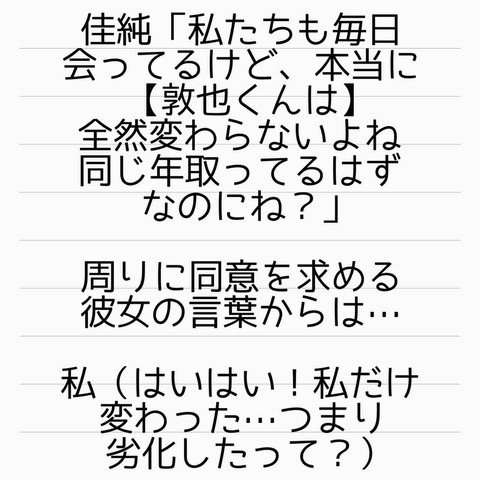 佳純「私たちも毎日
会ってるけど、本当に
【敦也くんは】
全然変わらないよね
同じ年取ってるはず
なのにね？」
周りに同意を求める
彼女の言葉からは…
私（はいはい！私だけ
変わった…つまり
劣化したって？）